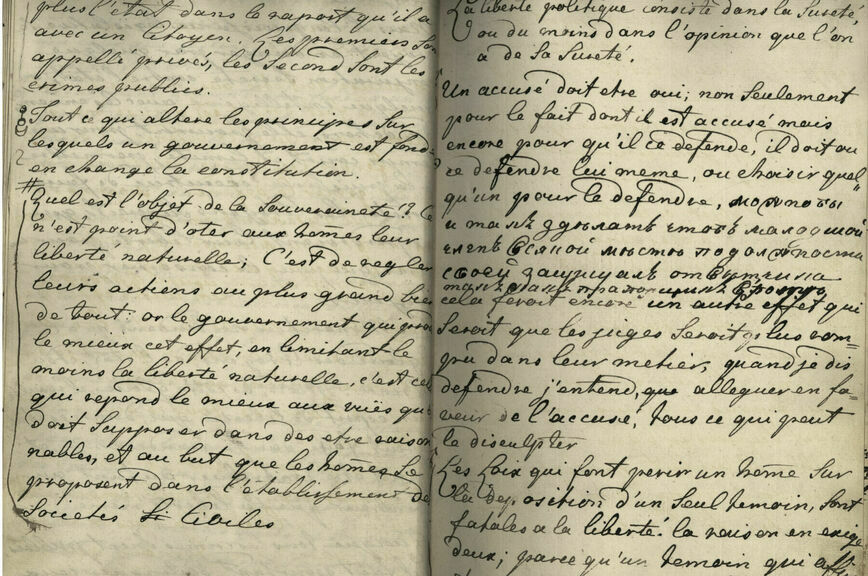 plus l'était dans le raport qu'il a
avec un Citoyen. Les premiers son
appellé privés, les Second sont les
crimes publics.
Tout ce qui altere les principes sur
lesquels un gouvernement est fond
en change la constitution.
Quel est l'objet de la Souveraineté? Ce
n'est point d'oter aux homes leur
liberté naturelle; C'est de regler
leurs actions au plus grand bien
de tout: or le gouvernement qui prod
le mieux cet effet, en limitant le
moins la liberté naturelle, c'est cel
qui repond le mieux aux vües qu
doit Supposer dans des etre raison
nables, et au but que les homes se
proposent dans l'établissement de
Societés Civiles
La liberté politique consiste dans la Sureté
ou du moins dans l'opinion que l'on
a de Sa Sureté.
Un accusé doit etre oui; non Seulement
pour le fait dont il est accusé mais
encore pour qu'il ce defende, il doit ou
ce defendre lui meme, ou choisir quel
qu'un pour le defendre, можноты
и такъ здѣлать чтобъ малодшой
членъ всякой мѣстю по должноста
своей защищалъ ответчика
cela feroit encore un autre effet qui
Seroit que les juges Seroit plus rom=
pu dans leur metier, quand je dis
defendre j'entend, que alleguer en fa=
veur de l'accusé, tous ce qui peut
le disculpter
Les Loix qui font perir un home Sur
la deposition d'un Seul temoin, sont
fatales a la liberté. la raison en exige
deux; parce qu'un temoin qui aff.